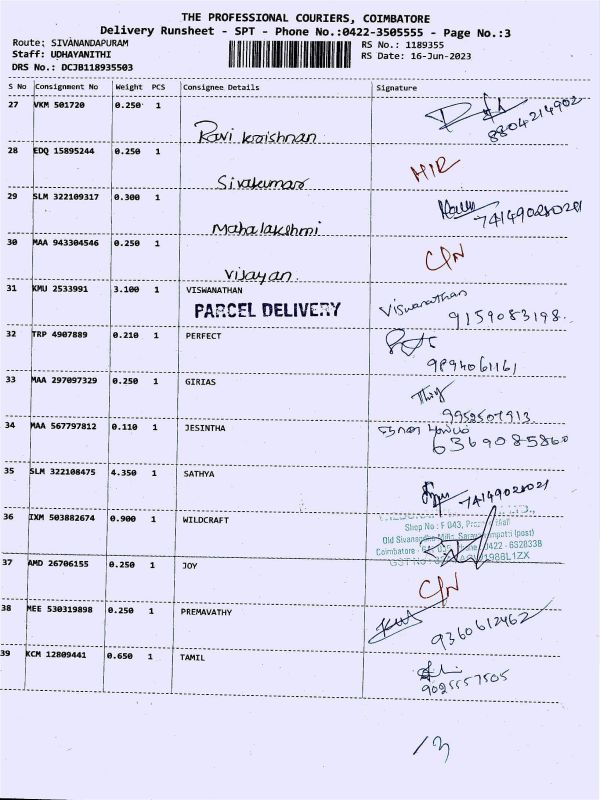 THE PROFESSIONAL COURIERS, COIMBATORE
Delivery Runsheet - SPT - Phone No.:0422-3505555 - Page No.:3
Route: SIVANANDAPURAM RS No.: 1189355
Staff: UDHAYANITHI RS Date: 16-Jun-2023
DRS No.: DCJB118935503
S No Consignment No Weight PCS Consignee Details Signature
27 VKM 501720 0.250 1
8804214902
Ravi kraishnan
28 EDQ 15895244 0.250 1
Sivakumar
29 SLM 322109317 0.300 1
Mahalakshmi
30 MAA 943304546 0.250 1
C/N
Vijayan
31 KMU 2533991 3.100 1 VISWANATHAN
Viswanathan
PARCEL DELIVERY
9159083198
32 TRP 4907889 0.210 1 PERFECT
9894061161
33 MAA 297097329 0.250 1 GIRIAS
9952507913
34 MAA 567797812 0.110 1 JESINTHA
35 SLM 322108475 4.350 1 SATHYA
36 IXM 503882674 0.900 1 WILDCRAFT
Shop No : F 043,
Old Sivanandha Mills, (post)
Coimbatore 0422 - 6328338
37 AMD 26706155 0.250 1 JOY
C/N
38 MEE 530319898 0.250 1 PREMAVATHY
9360612462
39 KCM 12809441 0.650 1 TAMIL
9025557505
13